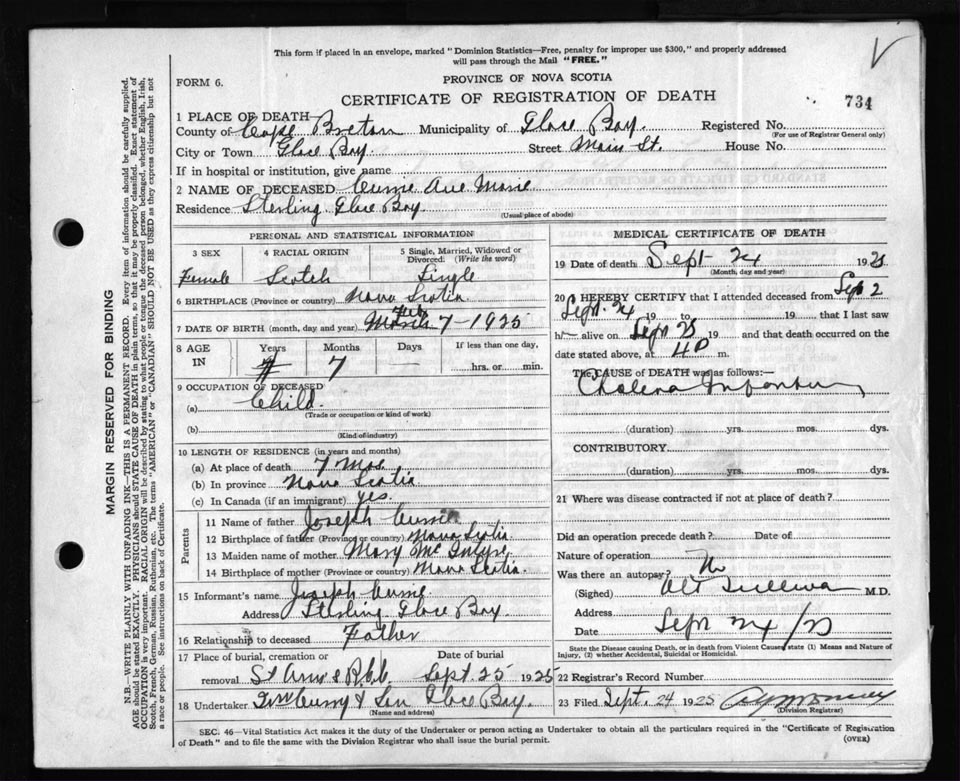 This form if placed in an envelope, marked "Dominion Statistics—Free, penalty for improper use $300," and properly addressed
will pass through the Mail "FREE."
FORM 6.
PROVINCE OF NOVA SCOTIA
CERTIFICATE OF REGISTRATION OF DEATH
734
1 PLACE OF DEATH
County of Cape Breton Municipality of Glace Bay. Registered No.
(For use of Registrar General only)
City or Town Glace Bay. Street Main St. House No.
If in hospital or institution, give name
2 NAME OF DECEASED Currie Marie
Residence Sterling Glace Bay
(Usual place of abode)
PERSONAL AND STATISTICAL INFORMATION
3 SEX Female
4 RACIAL ORIGIN Scotch
5 Single, Married, Widowed or Divorced. (Write the word) Single
6 BIRTHPLACE (Province or country) Nova Scotia
7 DATE OF BIRTH (month, day and year) 7-1925
8 AGE IN Years Months 7 Days — If less than one day, hrs. or min.
9 OCCUPATION OF DECEASED
(a) Child.
(Trade or occupation or kind of work)
(b)
(Kind of industry)
10 LENGTH OF RESIDENCE (in years and months)
(a) At place of death 7 mos.
(b) In province Nova Scotia
(c) In Canada (if an immigrant) yes.
Parents
11 Name of father Joseph Currie
12 Birthplace of father (Province or country) Nova Scotia
13 Maiden name of mother Mary
14 Birthplace of mother (Province or country) Nova Scotia.
15 Informant's name Joseph Currie
Address Sterling Glace Bay.
16 Relationship to deceased Father
17 Place of burial, cremation or removal St Ann's
Date of burial Sept. 25 1925
18 Undertaker & Son Glace Bay.
(Name and address)
MEDICAL CERTIFICATE OF DEATH
19 Date of death Sept 24 192
(Month, day and year)
20 I HEREBY CERTIFY that I attended deceased from Sep 2
Sept. 24 19 to 19 that I last saw
h alive on Sept 19 and that death occurred on
date stated above, at m.
The CAUSE of DEATH was as follows:—
Cholera Infantum
(duration) yrs. mos. dys.
CONTRIBUTORY
(duration) yrs. mos. dys.
21 Where was disease contracted if not at place of death?
Did an operation precede death? Date of
Nature of operation
Was there an autopsy? No
(Signed) Sullivan M.D.
Address
Date Sept 24/25
State the Disease causing Death, or in death from Violent Causes, state (1) Means and Nature of
Injury, (2) whether Accidental, Suicidal or Homicidal.
22 Registrar's Record Number
23 Filed Sept. 24 1925
(Division Registrar)
SEC. 46—Vital Statistics Act makes it the duty of the Undertaker or person acting as Undertaker to obtain all the particulars required in the "Certificate of Registration
of Death" and to file the same with the Division Registrar who shall issue the burial permit.
(OVER)
MARGIN RESERVED FOR BINDING
N.B.—WRITE PLAINLY WITH UNFADING INK—THIS IS A PERMANENT RECORD. Every item of information should be carefully supplied.
AGE should be stated EXACTLY. PHYSICIANS should STATE CAUSE OF DEATH in plain terms, so that it may be properly classified. Exact statement of
OCCUPATION is very important. RACIAL ORIGIN will be described by stating to what people or tongue the deceased person belonged, whether English, Irish,
Scotch, French, German, Russian, Ruthenian, etc. The terms "AMERICAN" or "CANADIAN" SHOULD NOT BE USED as they express citizenship but not
a race or people. See instructions on back of Certificate.